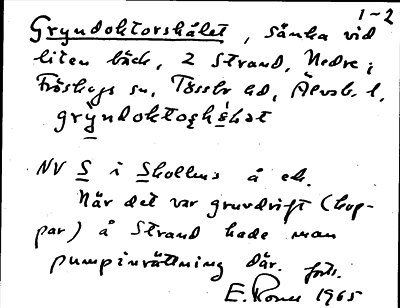 1-2
Gryndoktorshålet, sänka vid
liten bäck, 2 Strand, Nedre i
Fröskogs sn, Tössbo hd, Älvsb. l.
grỳndoktoʂhɵ́lət
NV S i Skollens å ek.
När det var gruvdrift (kop-
par) å Strand hade man
pumpinrättning där. forts.
E. 1965